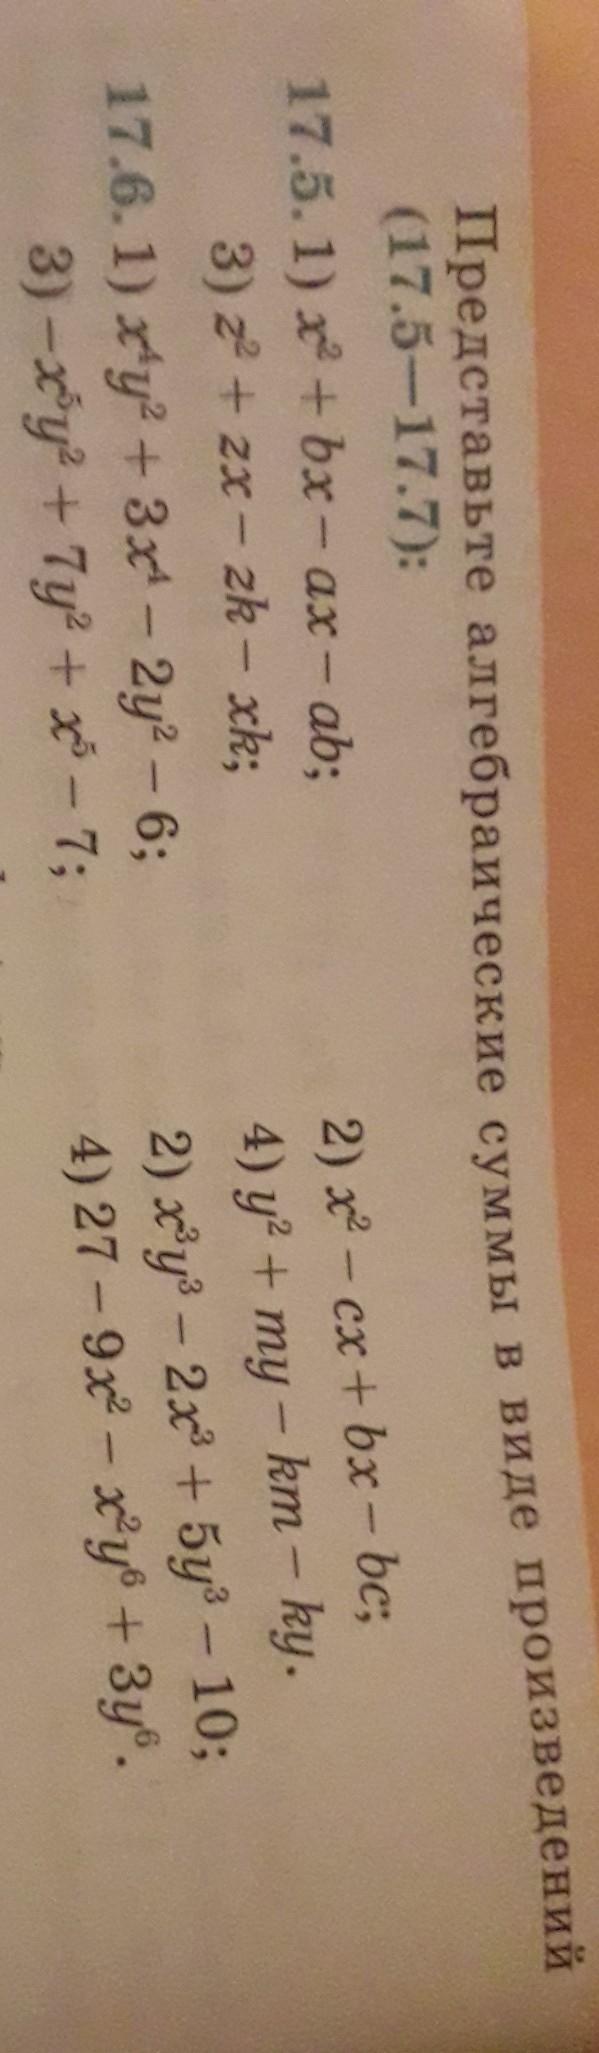 Представьте алгебраические суммы в виде произведений
(17.5—17.7):
17.5. 1) x² + bx – ax – ab; 2) x² – cx + bx – bc;
3) z² + zx – zk – xk; 4) y² + my – km – ky.
17.6. 1) x⁴y² + 3x⁴ – 2y² – 6; 2) x³y³ – 2x³ + 5y³ – 10;
3) –x⁵y² + 7y² + x⁵ – 7; 4) 27 – 9x² – x²y⁶ + 3y⁶.